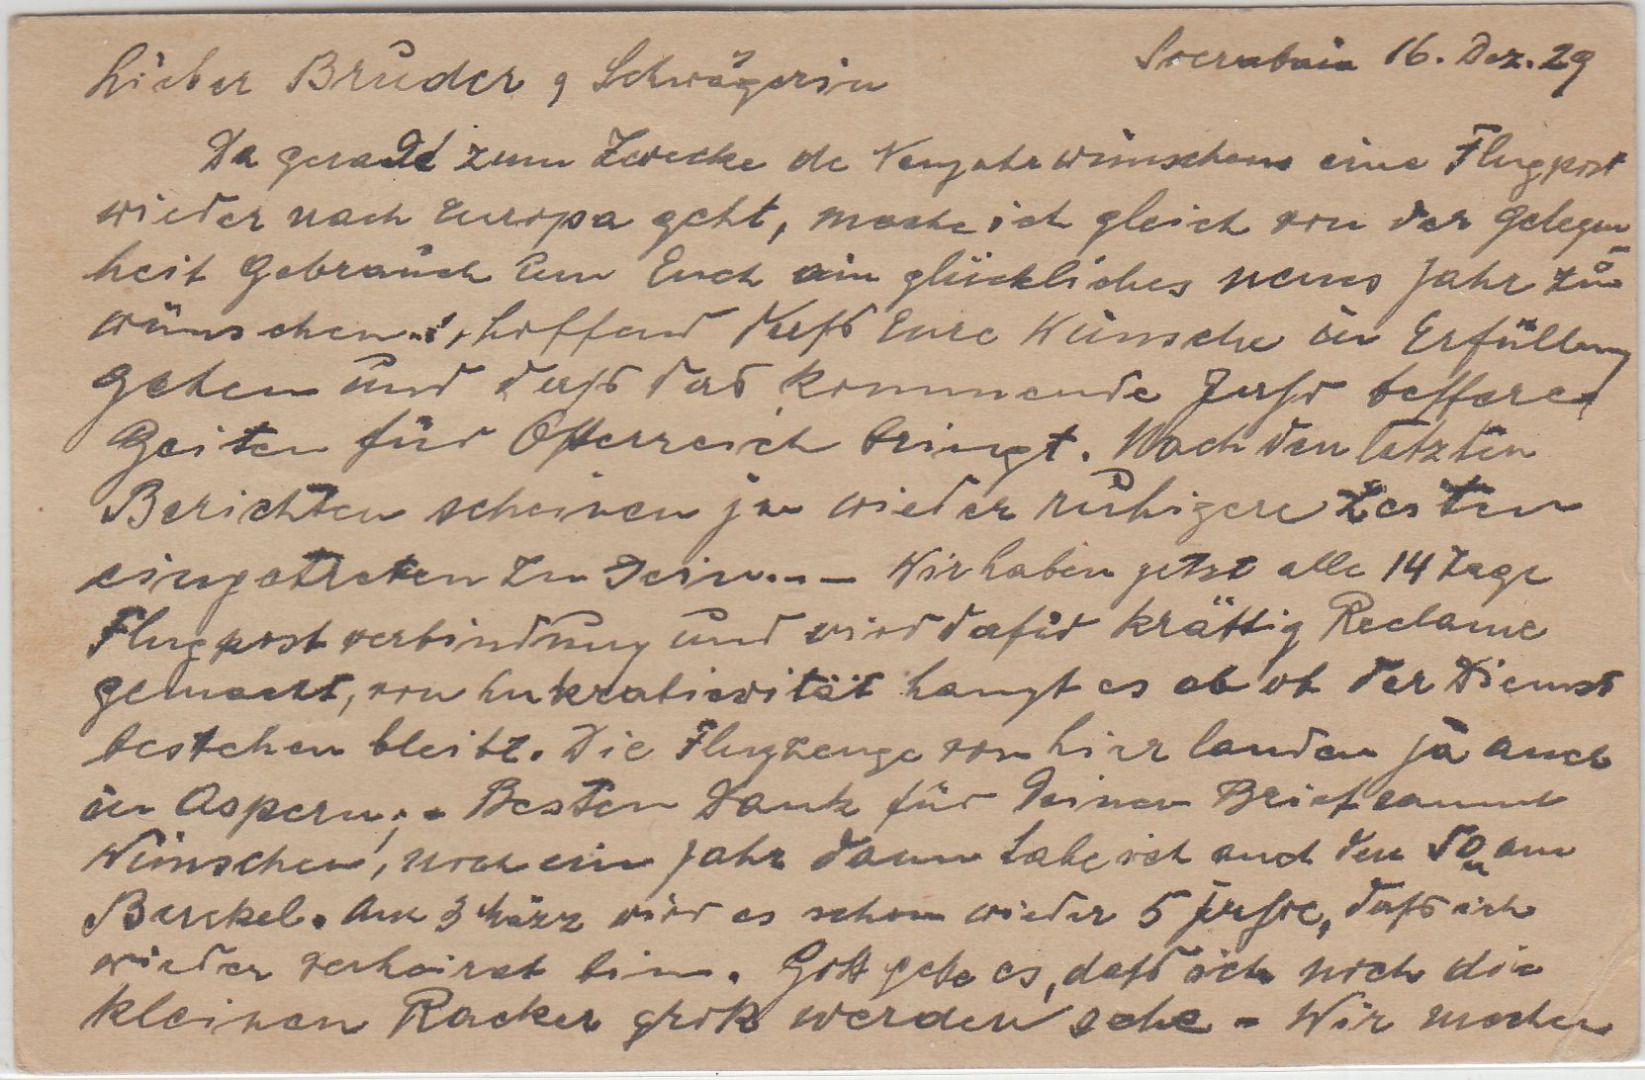 Soerabaia 16. Dez. 29
Lieber Bruder, Schwägerin
Da gerade zum Zwecke de Neujahrwünschens eine Flugpost
wieder nach Europa geht, mache ich gleich von der Gelegen
heit Gebrauch um Euch ein glückliches neues Jahr zu
wünschen, hoffend dass Eure Wünsche in Erfüllung
gehen und dass das kommende Jahr bessere
Zeiten für Österreich bringt. Nach den letzten
Berichten scheinen ja wieder ruhigere Zeiten
eingetreten zu sein... — Wir haben jetzt alle 14 Tage
Flugpostverbindung und wird dafür kräftig Reclame
gemacht, von Lukrativität hangt es ab ob der Dienst
bestehen bleibt. Die Flugzeuge von hier landen ja auch
in Aspern; - Besten Dank für Deinen Brief sammt
Wünschen, noch ein Jahr dann habe ich auch den 50 am
Buckel. Am 3 März wird es schon wieder 5 Jahre, dass ich
wieder verheirat bin. Gott gebe es, dass ich noch die
kleinen Racker groß werden sehe - Wir machen